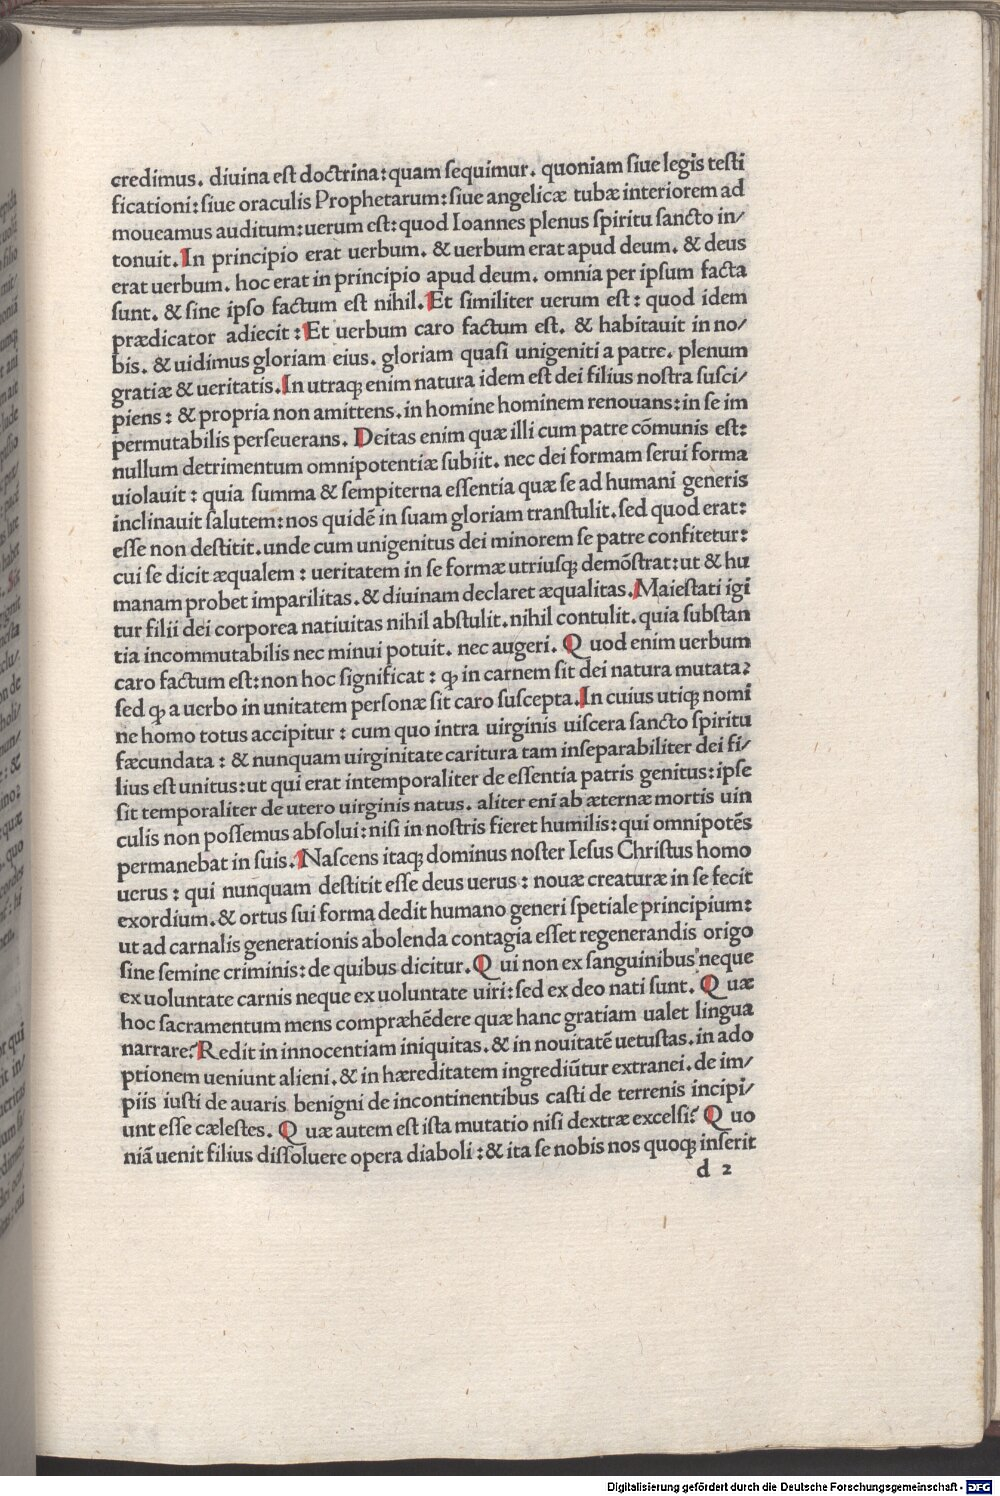 credimus. diuina est doctrina:quam sequimur. quoniam siue legis testi
ficationi:siue oraculis Prophetarum:siue angelicæ tubæ interiorem ad
moueamus auditum:uerum est:quod Ioannes plenus spiritu sancto in/
tonuit. In principio erat uerbum. & uerbum erat apud deum. & deus
erat uerbum. hoc erat in principio apud deum. omnia per ipsum facta
sunt. & sine ipso factum est nihil. Et similiter uerum est: quod idem
prædicator adiecit: Et uerbum caro factum est. & habitauit in no/
bis. & uidimus gloriam eius. gloriam quasi unigeniti a patre. plenum
gratiæ & ueritatis. In utraqꝫ enim natura idem est dei filius nostra susci/
piens: & propria non amittens. in homine hominem renouans:in se im
permutabilis perseuerans. Deitas enim quæ illi cum patre cōmunis est:
nullum detrimentum omnipotentiæ subiit. nec dei formam serui forma
uiolauit: quia summa & sempiterna essentia quæ se ad humani generis
inclinauit salutem:nos quidē in suam gloriam transtulit. sed quod erat:
esse non destitit. unde cum unigenitus dei minorem se patre confitetur:
cui se dicit æqualem: ueritatem in se formæ utriusqꝫ demōstrat:ut & hu
manam probet imparilitas. & diuinam declaret æqualitas. Maiestati igi
tur filii dei corporea natiuitas nihil abstulit. nihil contulit. quia substan
tia incommutabilis nec minui potuit. nec augeri. Quod enim uerbum
caro factum est:non hoc significat: ꝙ in carnem sit dei natura mutata?
sed ꝙ a uerbo in unitatem personæ sit caro suscepta. In cuius utiqꝫ nomi
ne homo totus accipitur: cum quo intra uirginis uiscera sancto spiritu
fæcundata: & nunquam uirginitate caritura tam inseparabiliter dei fi/
lius est unitus:ut qui erat intemporaliter de essentia patris genitus:ipse
sit temporaliter de utero uirginis natus. aliter eni ab æternæ mortis uin
culis non possemus absolui:nisi in nostris fieret humilis:qui omnipotēs
permanebat in suis. Nascens itaqꝫ dominus noster Iesus Christus homo
uerus: qui nunquam destitit esse deus uerus: nouæ creaturæ in se fecit
exordium. & ortus sui forma dedit humano generi spetiale principium:
ut ad carnalis generationis abolenda contagia esset regenerandis origo
sine semine criminis:de quibus dicitur. Qui non ex sanguinibus neque
ex uoluntate carnis neque ex uoluntate uiri:sed ex deo nati sunt. Quæ
hoc sacramentum mens compræhēdere quæ hanc gratiam ualet lingua
narrare? Redit in innocentiam iniquitas. & in nouitatē uetustas. in ado
ptionem ueniunt alieni. & in hæreditatem ingrediūtur extranei. de im/
piis iusti de auaris benigni de incontinentibus casti de terrenis incipi/
unt esse cælestes. Quæ autem est ista mutatio nisi dextræ excelsi? Quo
niā uenit filius dissoluere opera diaboli: & ita se nobis nos quoqꝫ inserit
d 2
Digitalisierung gefördert durch die Deutsche Forschungsgemeinschaft - DFG